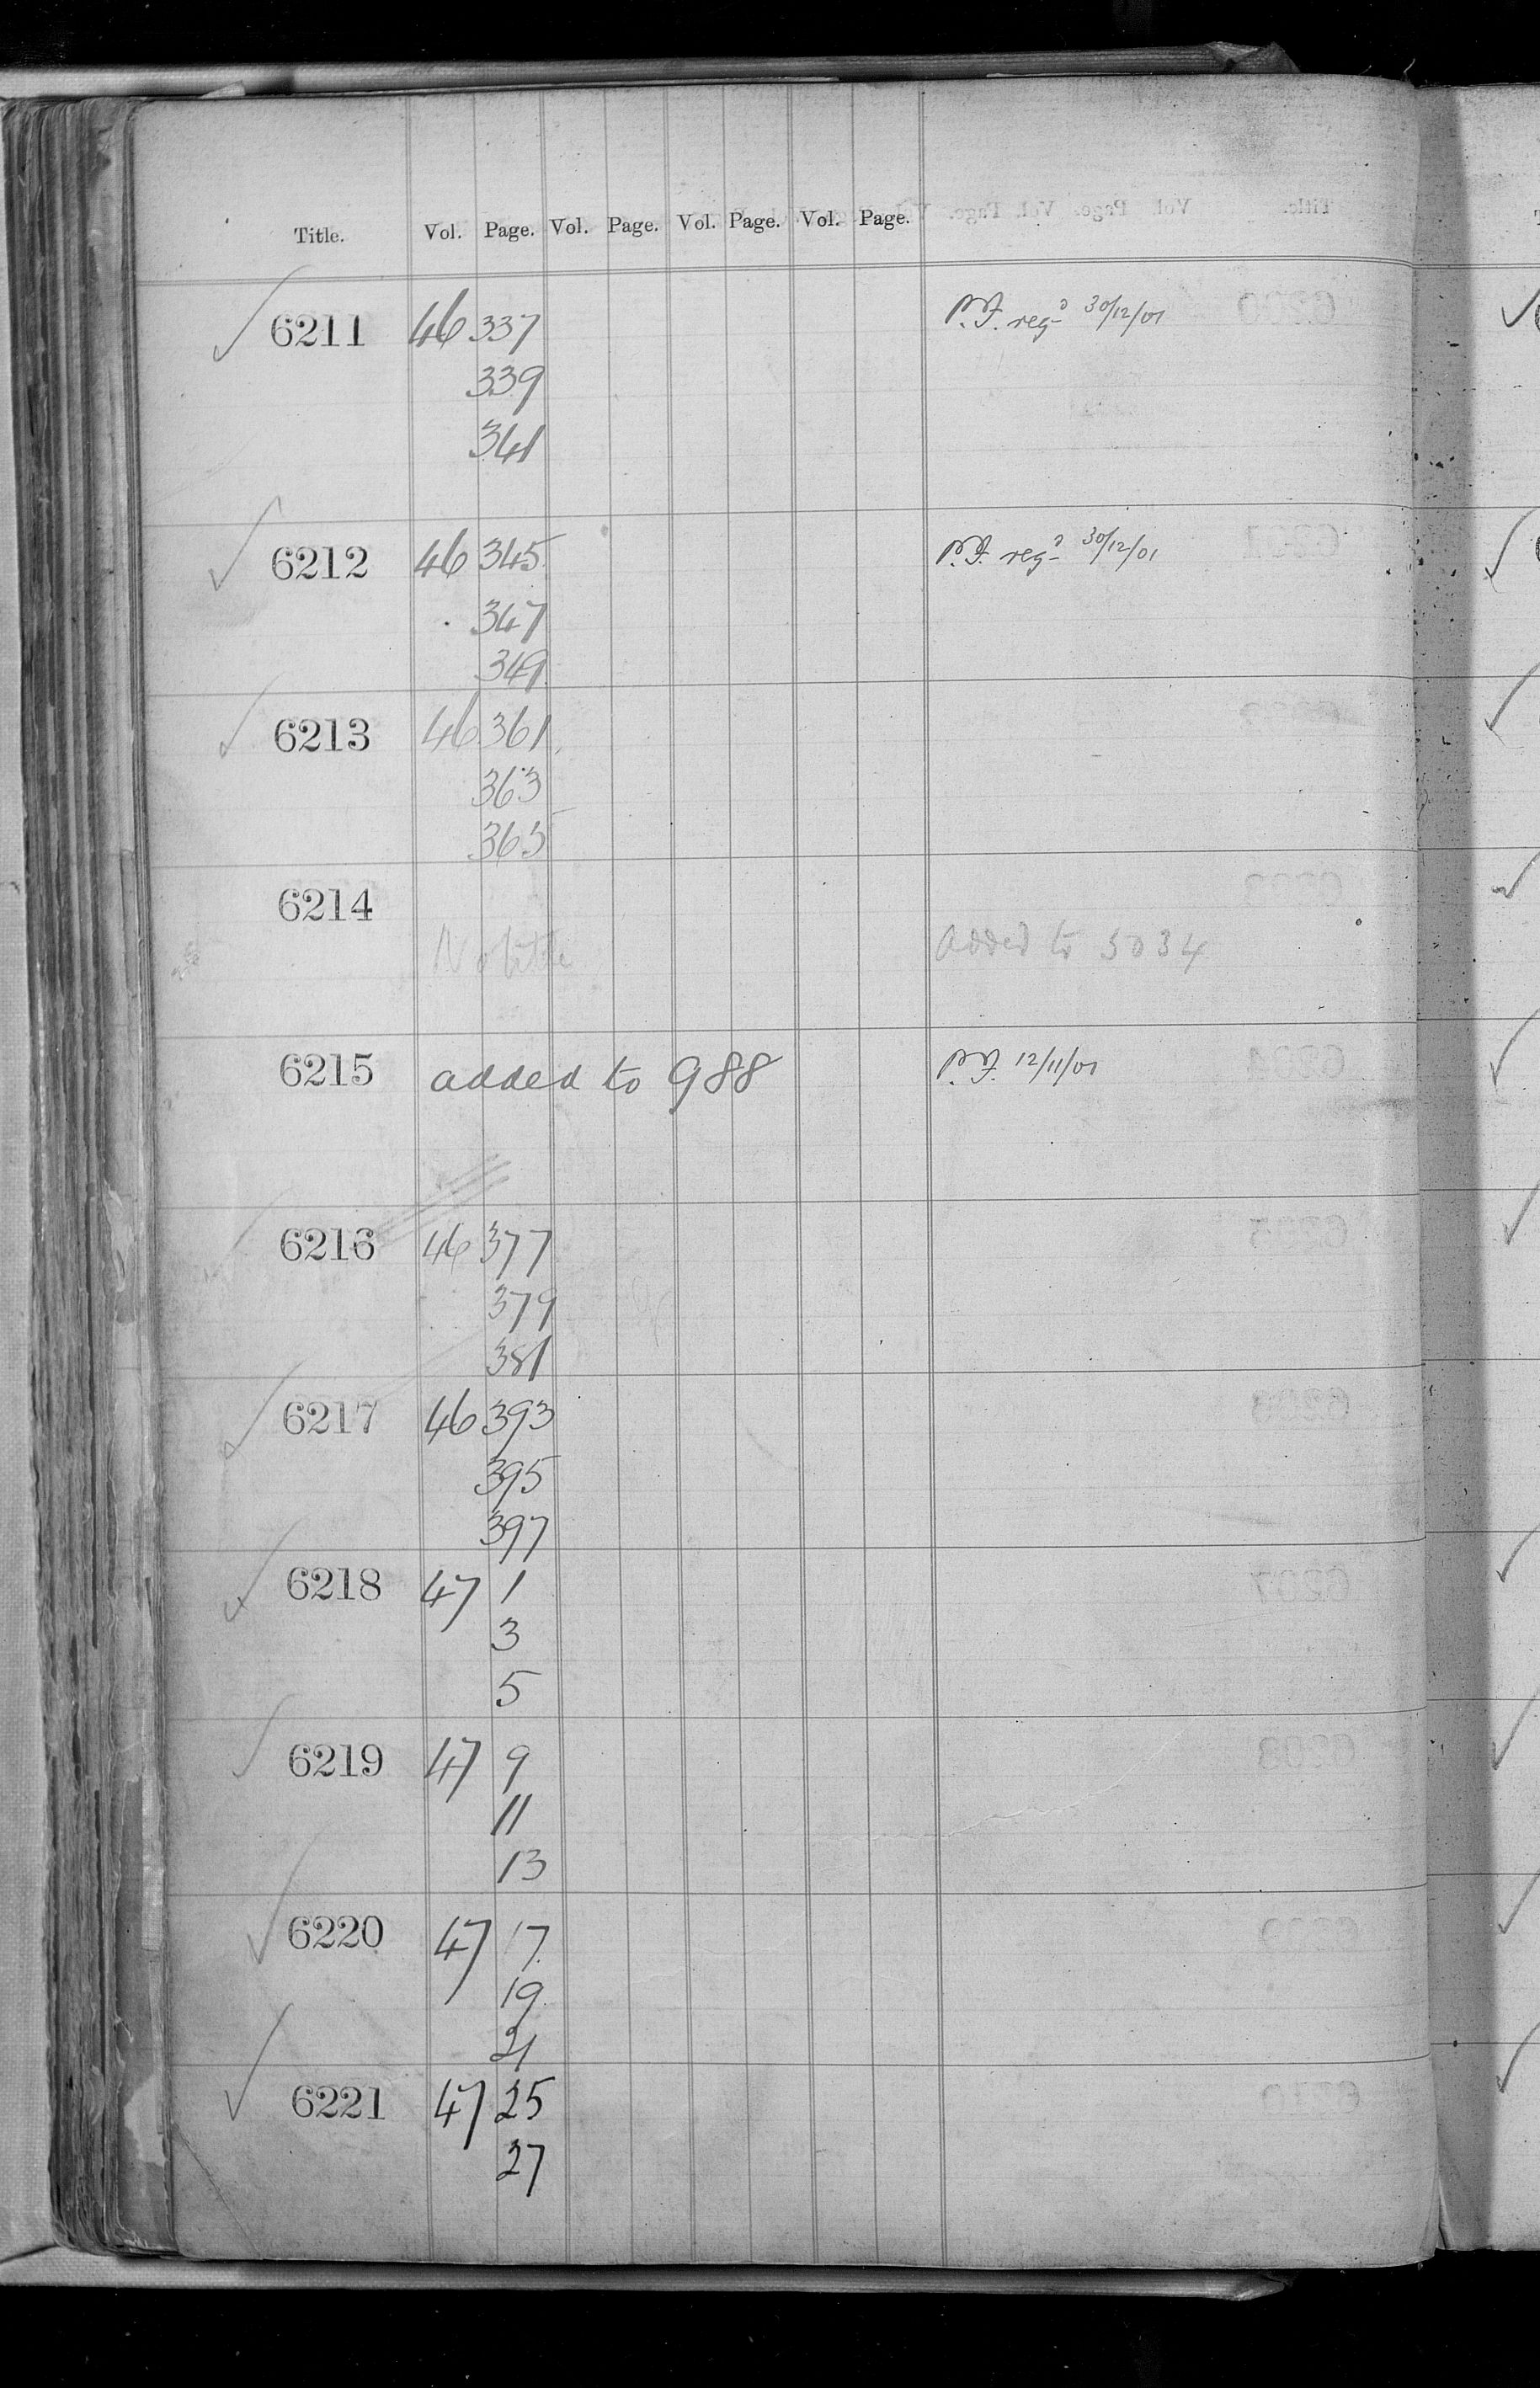 Title. Vol. Page. Vol. Page. Vol. Page. Vol. Page.
6211 46 337 P.F. regd 30/12/01
339
341
6212 46 345 P.F. regd 30/12/01
347
349
6213 46 361
363
365
6214
No title added to 5034
6215 added to 988 P.F. 12/11/01
6216 46 377
379
381
6217 46 393
395
397
6218 47 1
3
5
6219 47 9
11
13
6220 47 17
19
21
6221 47 25
27